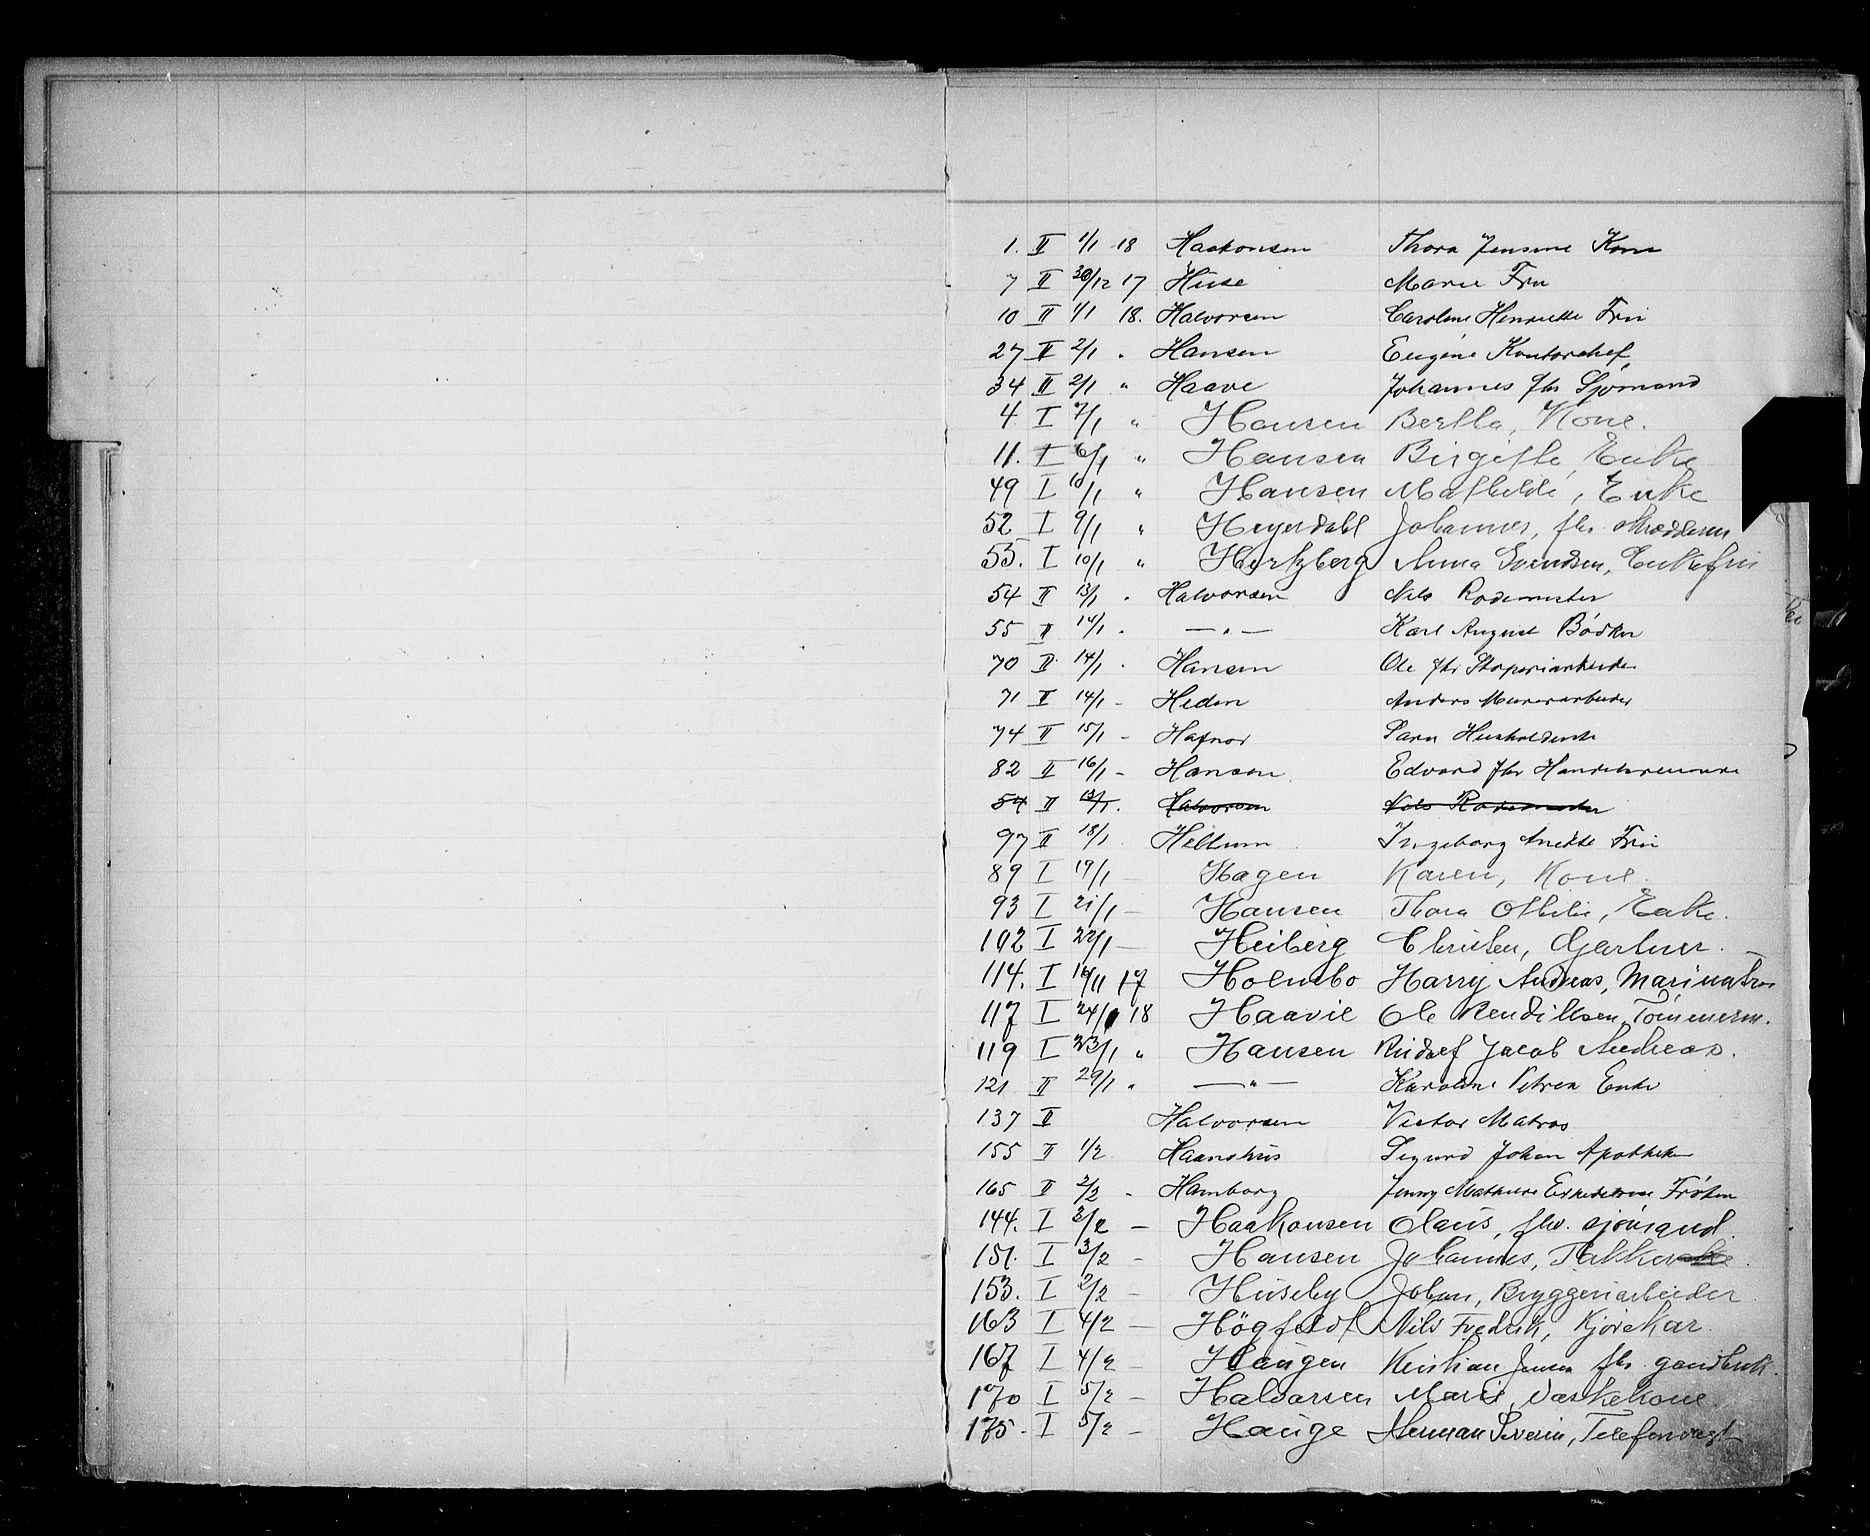 1. II 1/1 18 Haakonsen Thora Jensine Kone
7 II 30/12 17 Huse Marie Fru
10 II 1/1 18. Halvorsen Caroline Henriette Fru
27 II 2/1 " Hansen Eugéne Kontorchef
34 II 2/1 " Haave Johannes fhv Sjømand
4 I 7/1 " Hansen Bertha, Kone.
11. I 6/1 " Hansen Birgitte, Enke
49 I 10/1 " Hansen Mathilde, Enke
52 I 9/1 " Heyerdahl Johannes, fhv.
53. I 10/1 " Hertzberg Anna Svendsen, Enkefru
54 II 13/1 " Halvorsen Nils Rodemester
55 II 14/1 . — " — Karl August Bødker
70 II 14/1 . Hansen Ole fhv Støperiarbeider
71 II 14/1 - Heden Anders Murerarbeider
74 II 15/1 - Hafnor Sara Husholderske
82 II 16/1 - Hansen Edvard fhv
54 II 13/1. Halvorsen Nils Rodemester
97 II 18/1 Hellum Ingeborg Anette Fru
89 I 19/1 — Hagen Karen, Kone.
93 I 21/1 — Hansen Thora Othilie, Enke.
102 I 22/1 — Heiberg Christen, Gartner.
114. I 16/11 17 Holmsbo Harry Andreas, Marinatros
117 I 24/1 18 Haavie Ole Bendiksen, Tømmerm.
119 I 23/1 " Hansen Rudolf Jacob Andreas.
121 II 29/1 " — " — Karoline Petrea Enke
137 II Halvorsen Victor Matros
155 II 1/2 Haanshus Sigurd Johan Apotheker
165 II 2/2 - Hamborg Jenny Mathilde Frøken
144. I 3/2 — Haakonsen Olaus, fhv. sjømand.
151. I 3/2 - Hansen Johannes, Takker
153. I 2/2 - Huseby Johan, Bryggeriarbeider
163 I 4/2 — Högfeldt Nils Fredrik, Kjørekar.
167 I 4/2 — Haugen Kristian Jensen fhv. gaardbruk.
170 I 5/2 — Halvorsen Marie, Vaskekone.
175. I 5/2 — Hauge Herman Severin, Telefonvagt